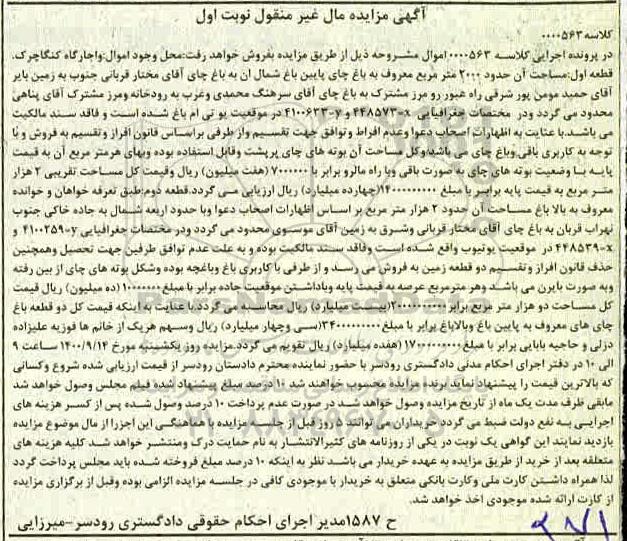 آگهی مزایده مال غیر منقول نوبت اول
کلاسه ۰۰۰۰۵۶۳
در پرونده اجرایی کلاسه ۰۰۰۰۵۶۳ اموال مشروحه ذیل از طریق مزایده بفروش خواهد رفت:محل وجود اموال:واجارگاه کنگاچرک.
قطعه اول:مساحت آن حدود ۲۰۰۰ متر مربع معروف به باغ چای پایین باغ شمال ان به باغ چای آقای مختار قربانی جنوب به زمین بایر
آقای حمید مومن پور شرقی راه عبور رو مرز مشترک به باغ چای آقای سرهنگ محمدی وغرب به رودخانه ومرز مشترک آقای پناهی
محدود می گردد ودر مختصات جغرافیایی x-۴۴۸۵۷۳ و y-۴۱۰۰۶۳۳ در موقعیت یو تی ام باغ شده است و فاقد سند مالکیت
می باشد.با عنایت به اظهارات اصحاب دعوا وعدم افراط وتوافق جهت تقسیم واز طرفی براساس قانون افراز وتقسیم به فروش و با
توجه به کاربری باقی وباغ چای می باشد وکل مساحت آن بوته های چای پرپشت وقابل استفاده بوده وبهای هرمتر مربع آن به قیمت
پایه با وضعیت بوته های چای به صورت باقی وبا راه مالرو برابر با ۷۰۰۰۰۰۰ (هفت میلیون) ریال وقیمت کل مساحت تقریبی ۲ هزار
متر مربع به قیمت پایه برابر با مبلغ ۱۴۰۰۰۰۰۰۰۰۰ (چهارده میلیارد) ریال ارزیابی می گردد.قطعه دوم:طبق تعرفه خواهان و خوانده
معروف به بالا باغ مساحت آن حدود ۲ هزار متر مربع بر اساس اظهارات اصحاب دعوا وبا حدود اربعه شمال به جاده خاکی جنوب
نهراب قربان به باغ چای آقای مختار قربانی وشرق به زمین آقای موسوی محدود می گردد ودر مختصات جغرافیایی y-۴۱۰۰۲۵۹ و
x-۴۴۸۵۳۹ در موقعیت یوتیوب واقع شده است وفاقد سند مالکیت بوده و به علت عدم توافق طرفین جهت تحصیل وهمچنین
حذف قانون افراز وتقسیم دو قطعه زمین به فروش می رسد و از طرفی با کاربری باغ وباغچه بوده وشکل بوته های چای از بین رفته
وبه صورت بایرن می باشد وهر مترمربع عرصه به قیمت پایه وباداشتن موقعیت جاده برابر با مبلغ ۱۰۰۰۰۰۰۰ (ده میلیون) ریال قیمت
کل مساحت دو هزار متر مربع برابر ۲۰۰۰۰۰۰۰۰۰۰ (بیست میلیارد) ریال محاسبه می گردد.با عنایت به اینکه قیمت کل دو قطعه باغ
چای های معروف به پایین باغ وبالاباغ برابر با مبلغ ۳۴۰۰۰۰۰۰۰۰۰ (سی وچهار میلیارد) ریال وسهم هریک از خانم ها فوزیه علیزاده
دزلی و حاجیه بابایی برابر با مبلغ ۱۷۰۰۰۰۰۰۰۰۰ (هفده میلیارد) ریال تقویم می گردد.مزایده روز یکشنبه مورخ ۱۴۰۰/۹/۱۴ ساعت ۹
الی ۱۰ در دفتر اجرای احکام مدنی دادگستری رودسر با حضور نماینده محترم دادستان رودسر از قیمت ارزیابی شده شروع وکسانی
که بالاترین قیمت را پیشنهاد نماید برنده مزایده محسوب خواهند شد ۱۰ درصد مبلغ پیشنهاد شده فیلم مجلس وصول خواهد شد
مابقی ظرف مدت یک ماه از تاریخ مزایده وصول خواهد شد در صورت عدم پرداخت ۱۰ درصد وصول شده پس از کسر هزینه های
اجرایی به نفع دولت ضبط می گردد خریداران می توانند ۵ روز قبل از جلسه مزایده با هماهنگی این اجرا از مال موضوع مزایده
بازدید نمایند این گواهی یک نوبت در یکی از روزنامه های کثیرالانتشار به نام حمایت درک ومنتشر خواهد شد کلیه هزینه های
متعلقه بعد از خرید از طریق مزایده به عهده خریدار می باشد نظر به اینکه ۱۰ درصد مبلغ فروخته شده باید مجلس پرداخت گردد
لذا همراه داشتن کارت ملی وکارت بانکی متعلق به خریدار با موجودی کافی در جلسه مزایده الزامی بوده وقبل از برگزاری مزایده
از کارت ارائه شده موجودی اخذ خواهد شد.
ح ۱۵۸۷ مدیر اجرای احکام حقوقی دادگستری رودسر-میرزایی